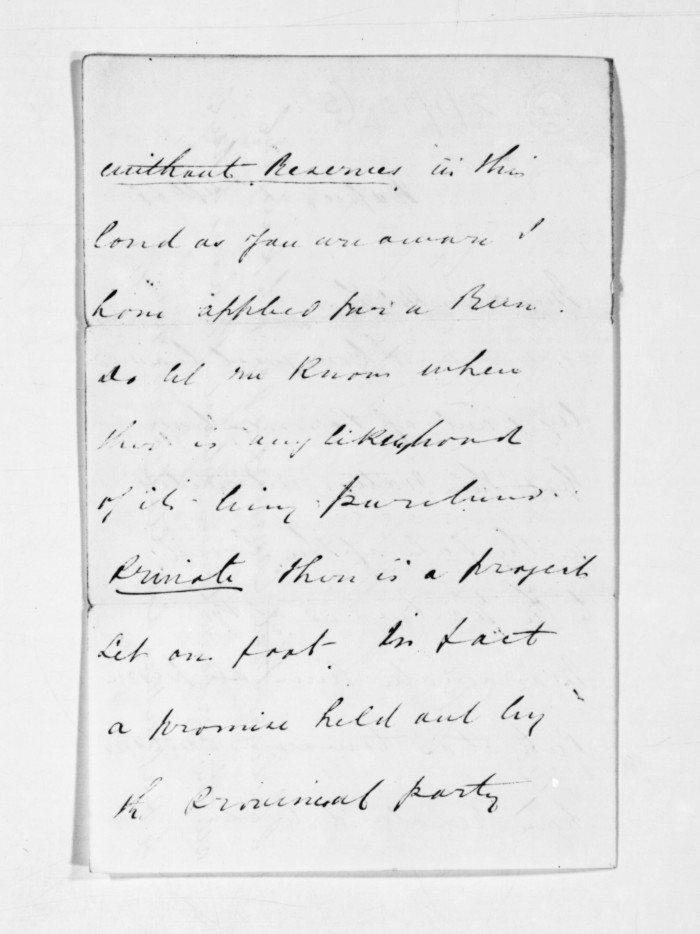 without Reserves in this
land as you are aware I
have applied for a Run.
do let me know when
there is any likelyhood
of its being purchased.
Private There is a project
set on foot. In fact
a promise held out by
the Provincial party